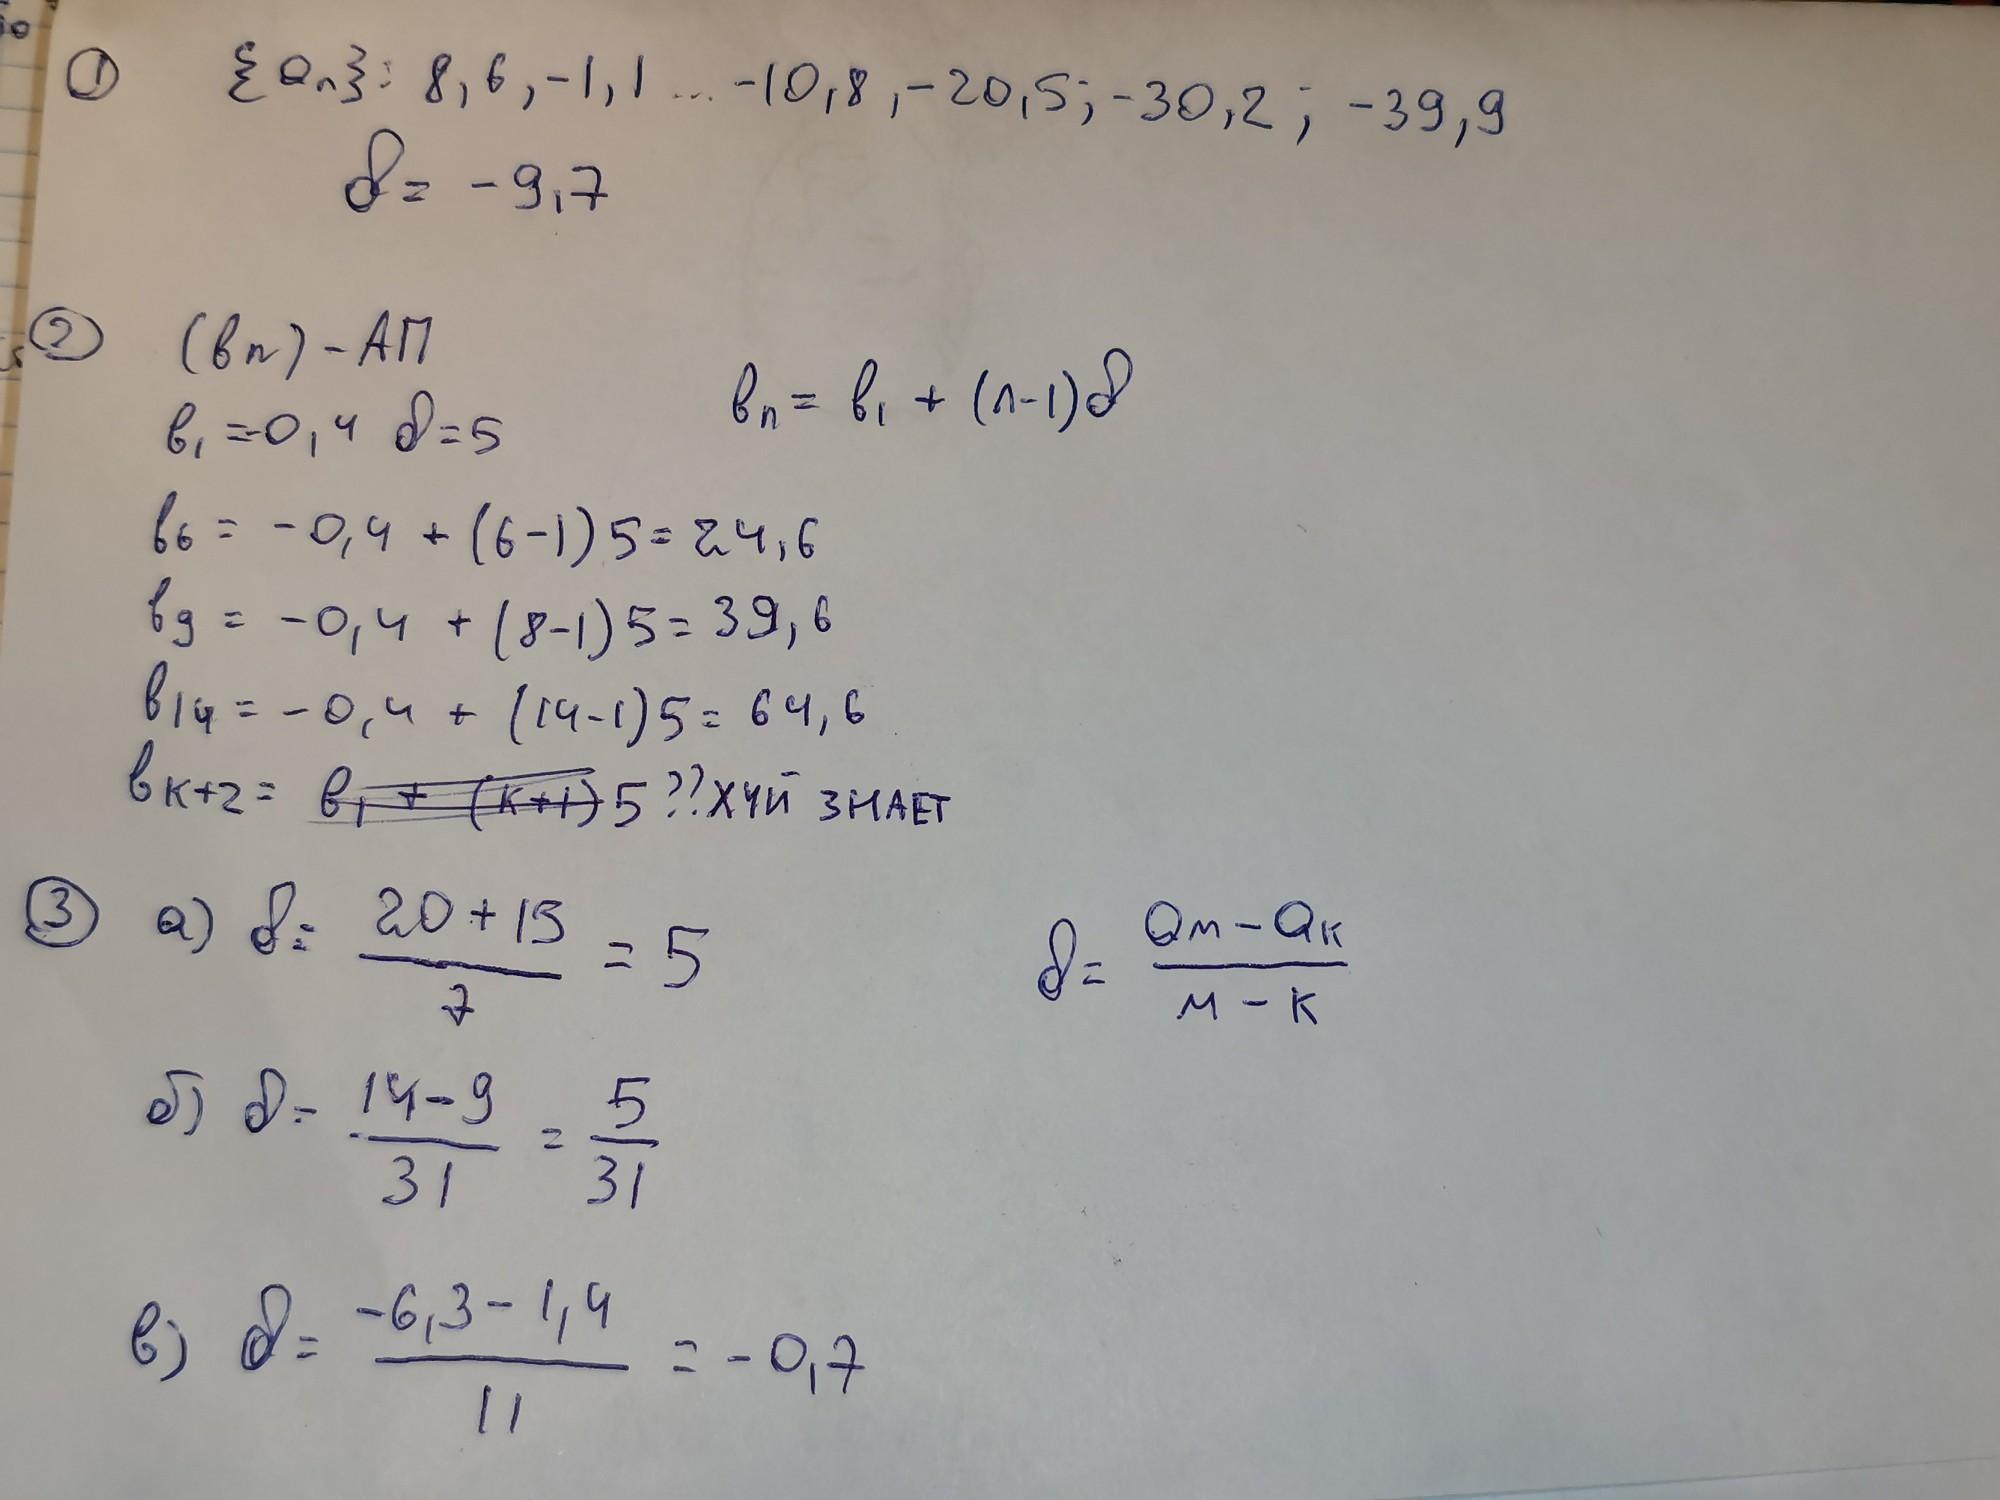 ① {an}: 8,6,-1,1 ... -10,8,-20,5; -30,2; -39,9
d= -9,7
② (вn)-АП
в1=-0,4 d=5
вn= в1 + (n-1)d
в6= -0,4 + (6-1)5=24,6
в9= -0,4 + (8-1)5=39,6
в14= -0,4 + (14-1)5= 64,6
вк+2= в1 + (к+1)5 ??ХУЙ ЗНАЕТ
③ а) d= 20+15/7 = 5
d= aм-aк/м-к
б) d= 14-9/31 = 5/31
в) d= -6,3-1,4/11 = -0,7